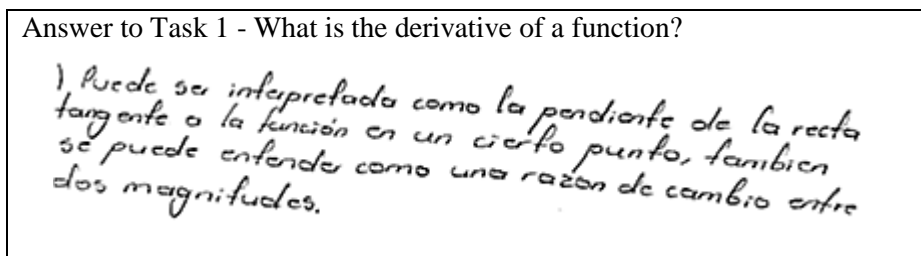 Answer to Task 1 - What is the derivative of a function?
1) Puede ser interpretada como la pendiente de la recta
tangente a la función en un cierto punto, tambien
se puede entender como una razón de cambio entre
dos magnitudes.